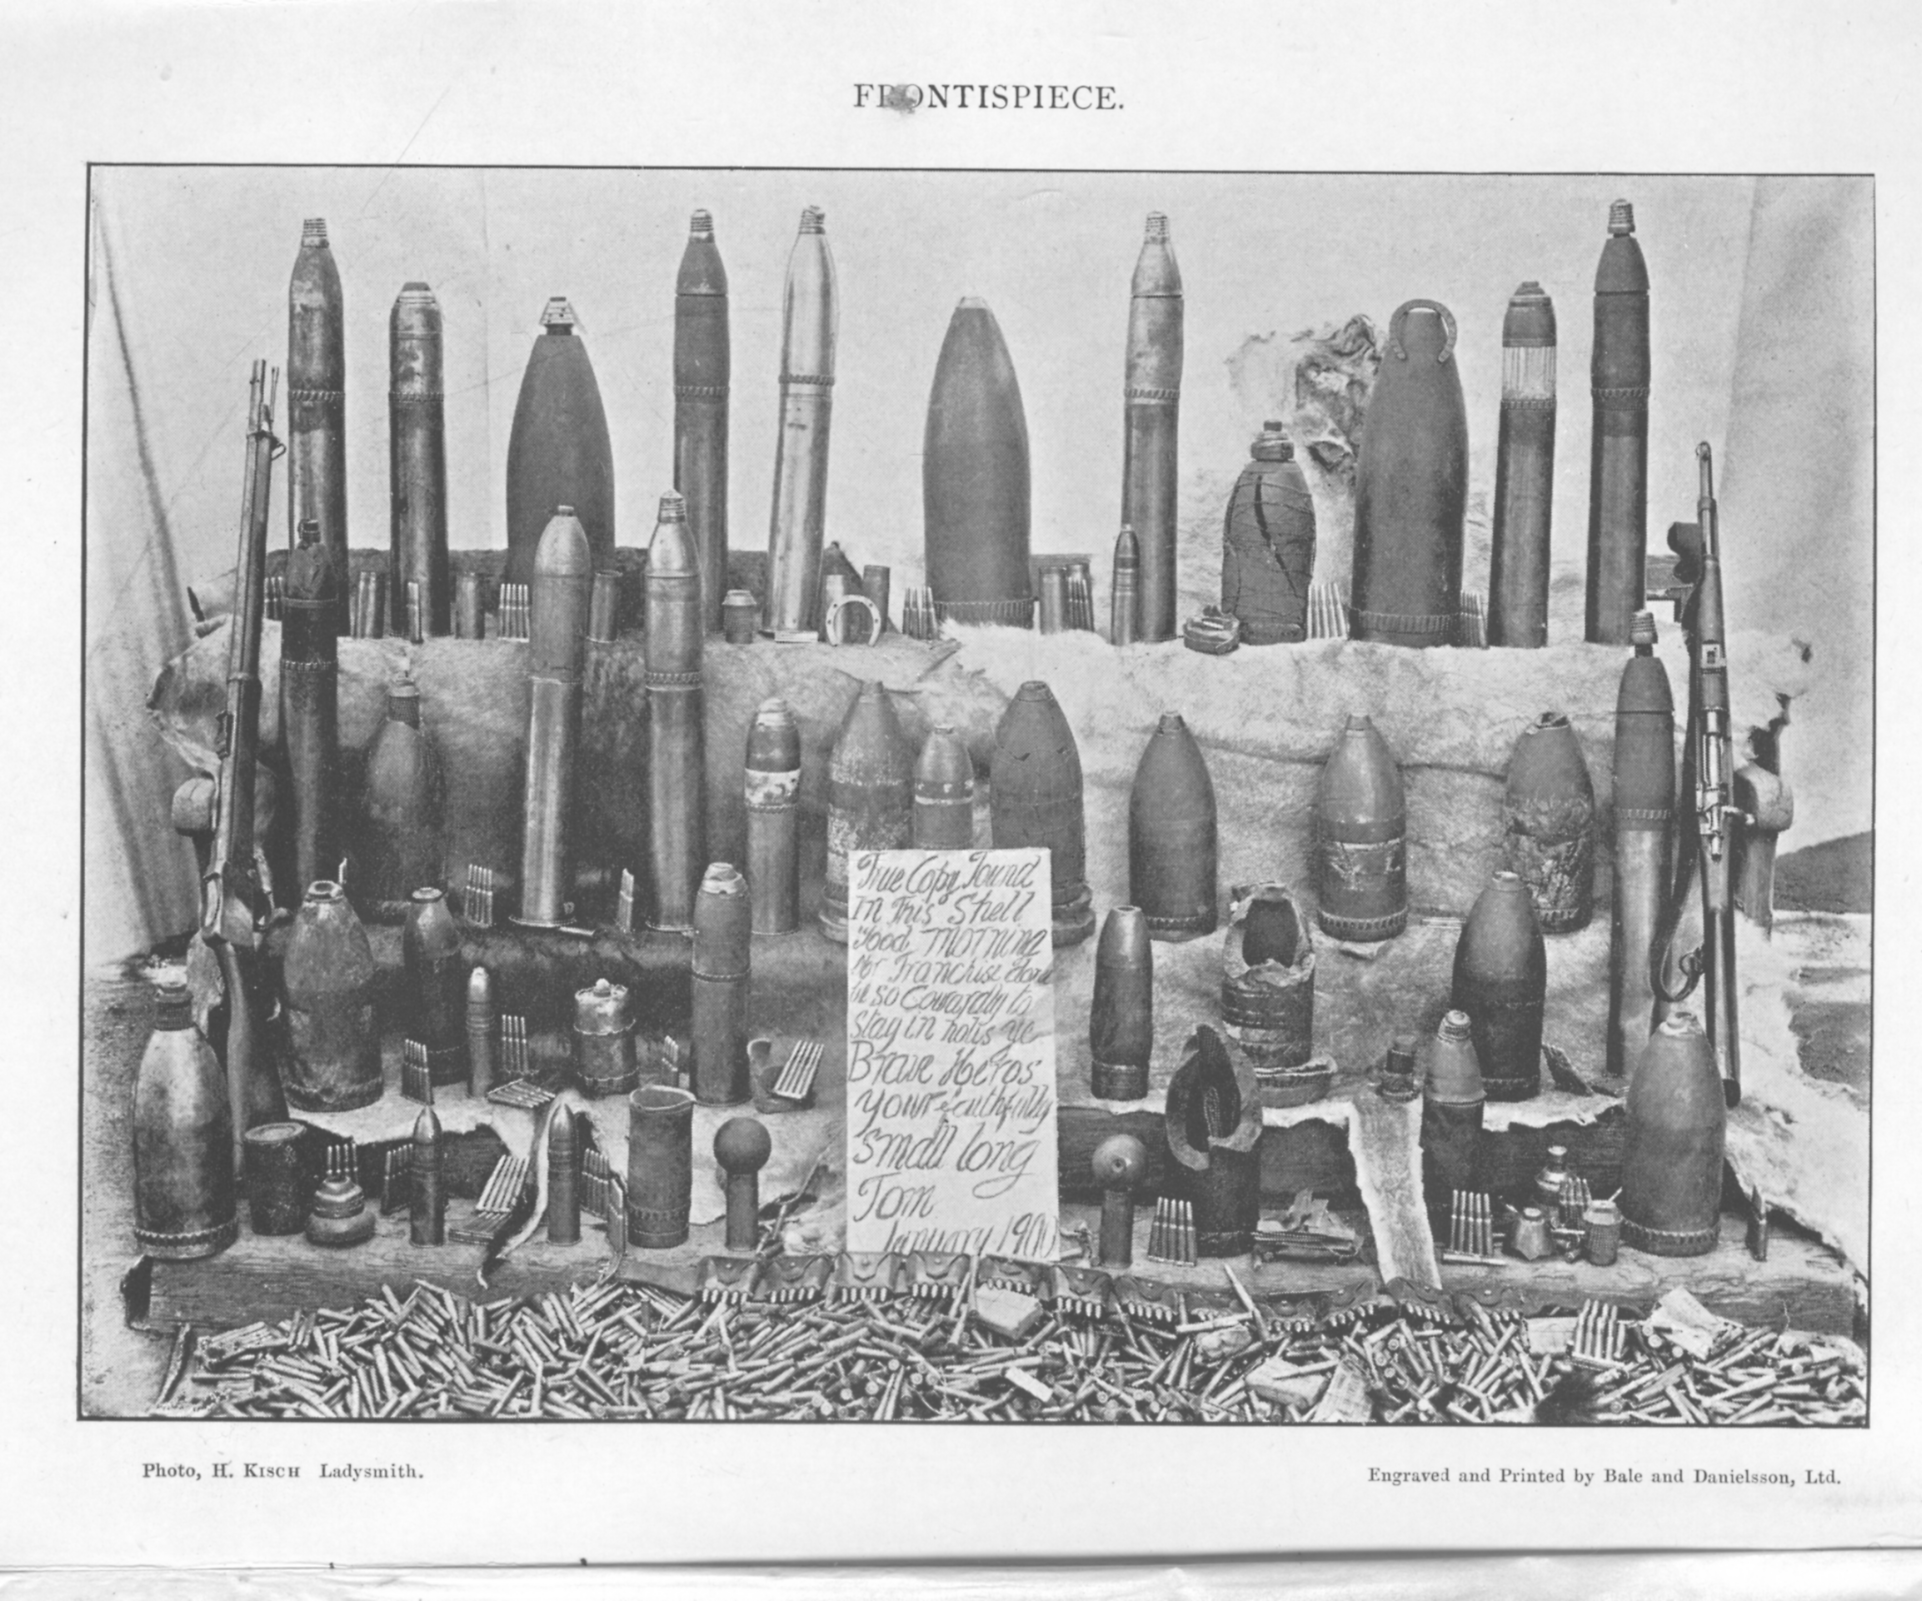 FRONTISPIECE.
True Copy Found
in This Shell
Good morning
Mr Franchise dont
be so Cowardly to
stay in holes ye
Brave Heros
yours faithfully
Small long
Tom
January 1900
Photo, H. KISCH Ladysmith.
Engraved and Printed by Bale and Danielsson, Ltd.